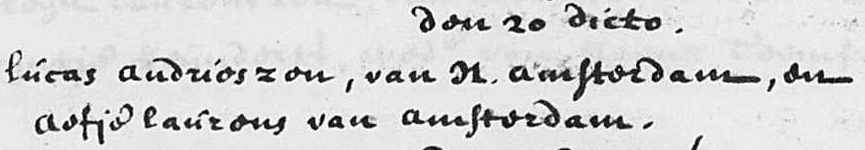 den 20 dicto.
lucas andrieszen, van N. amsterdam, en
aefje laurens van amsterdam.